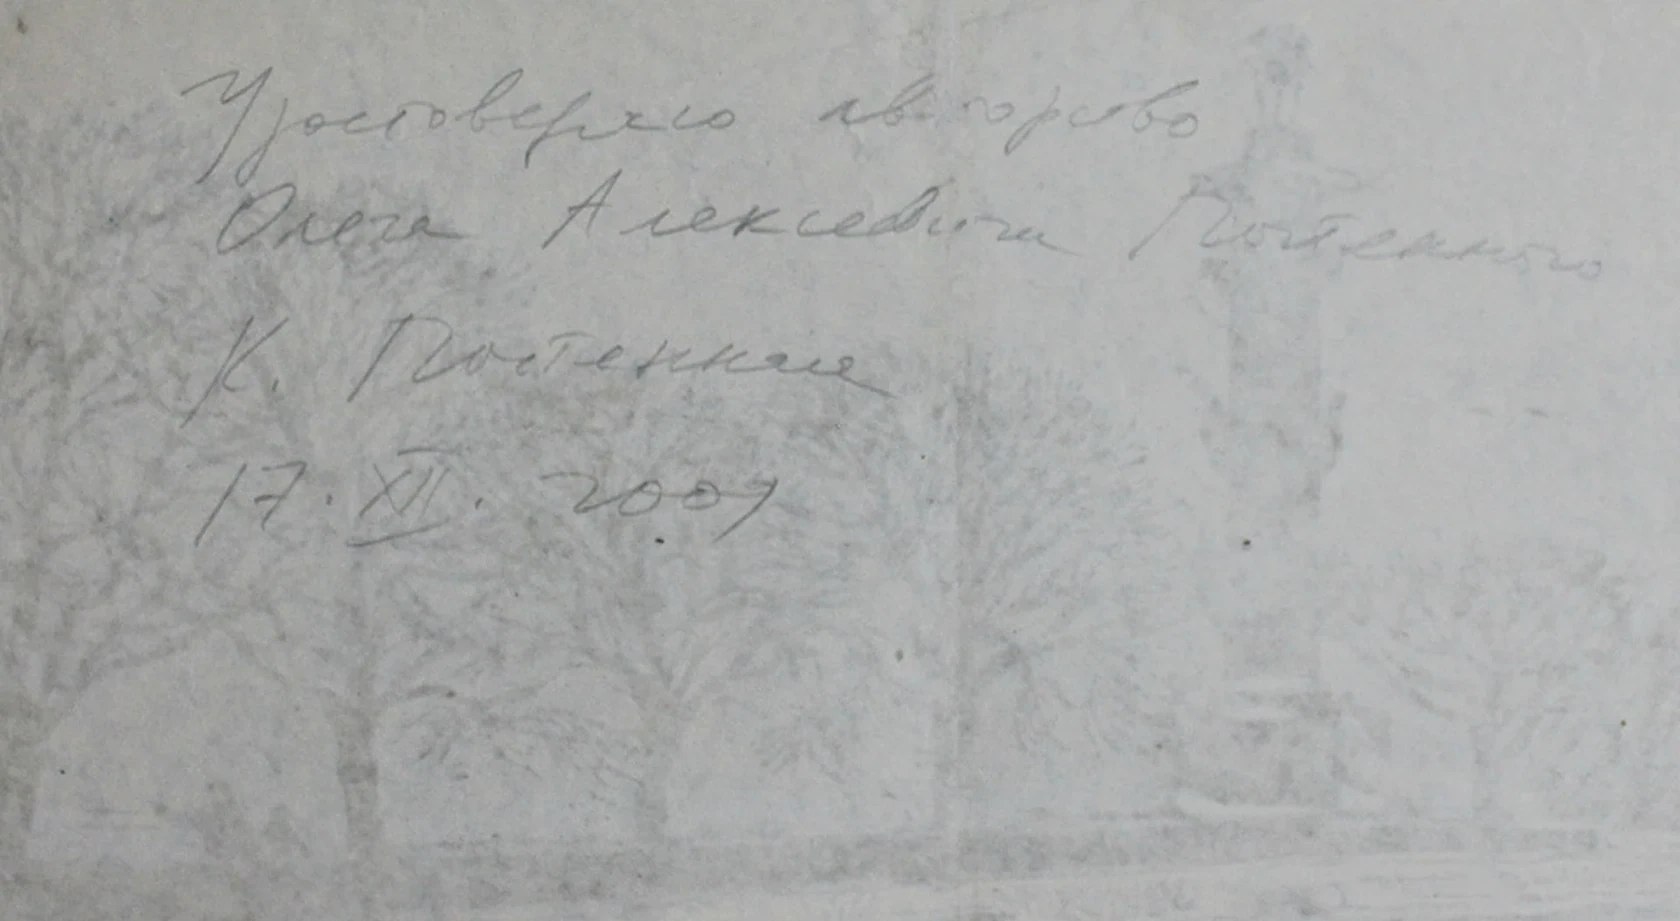 Удостоверяю авторство
Олега Алексеевича Почтенного
К. Почтенная
17. XII. 2007